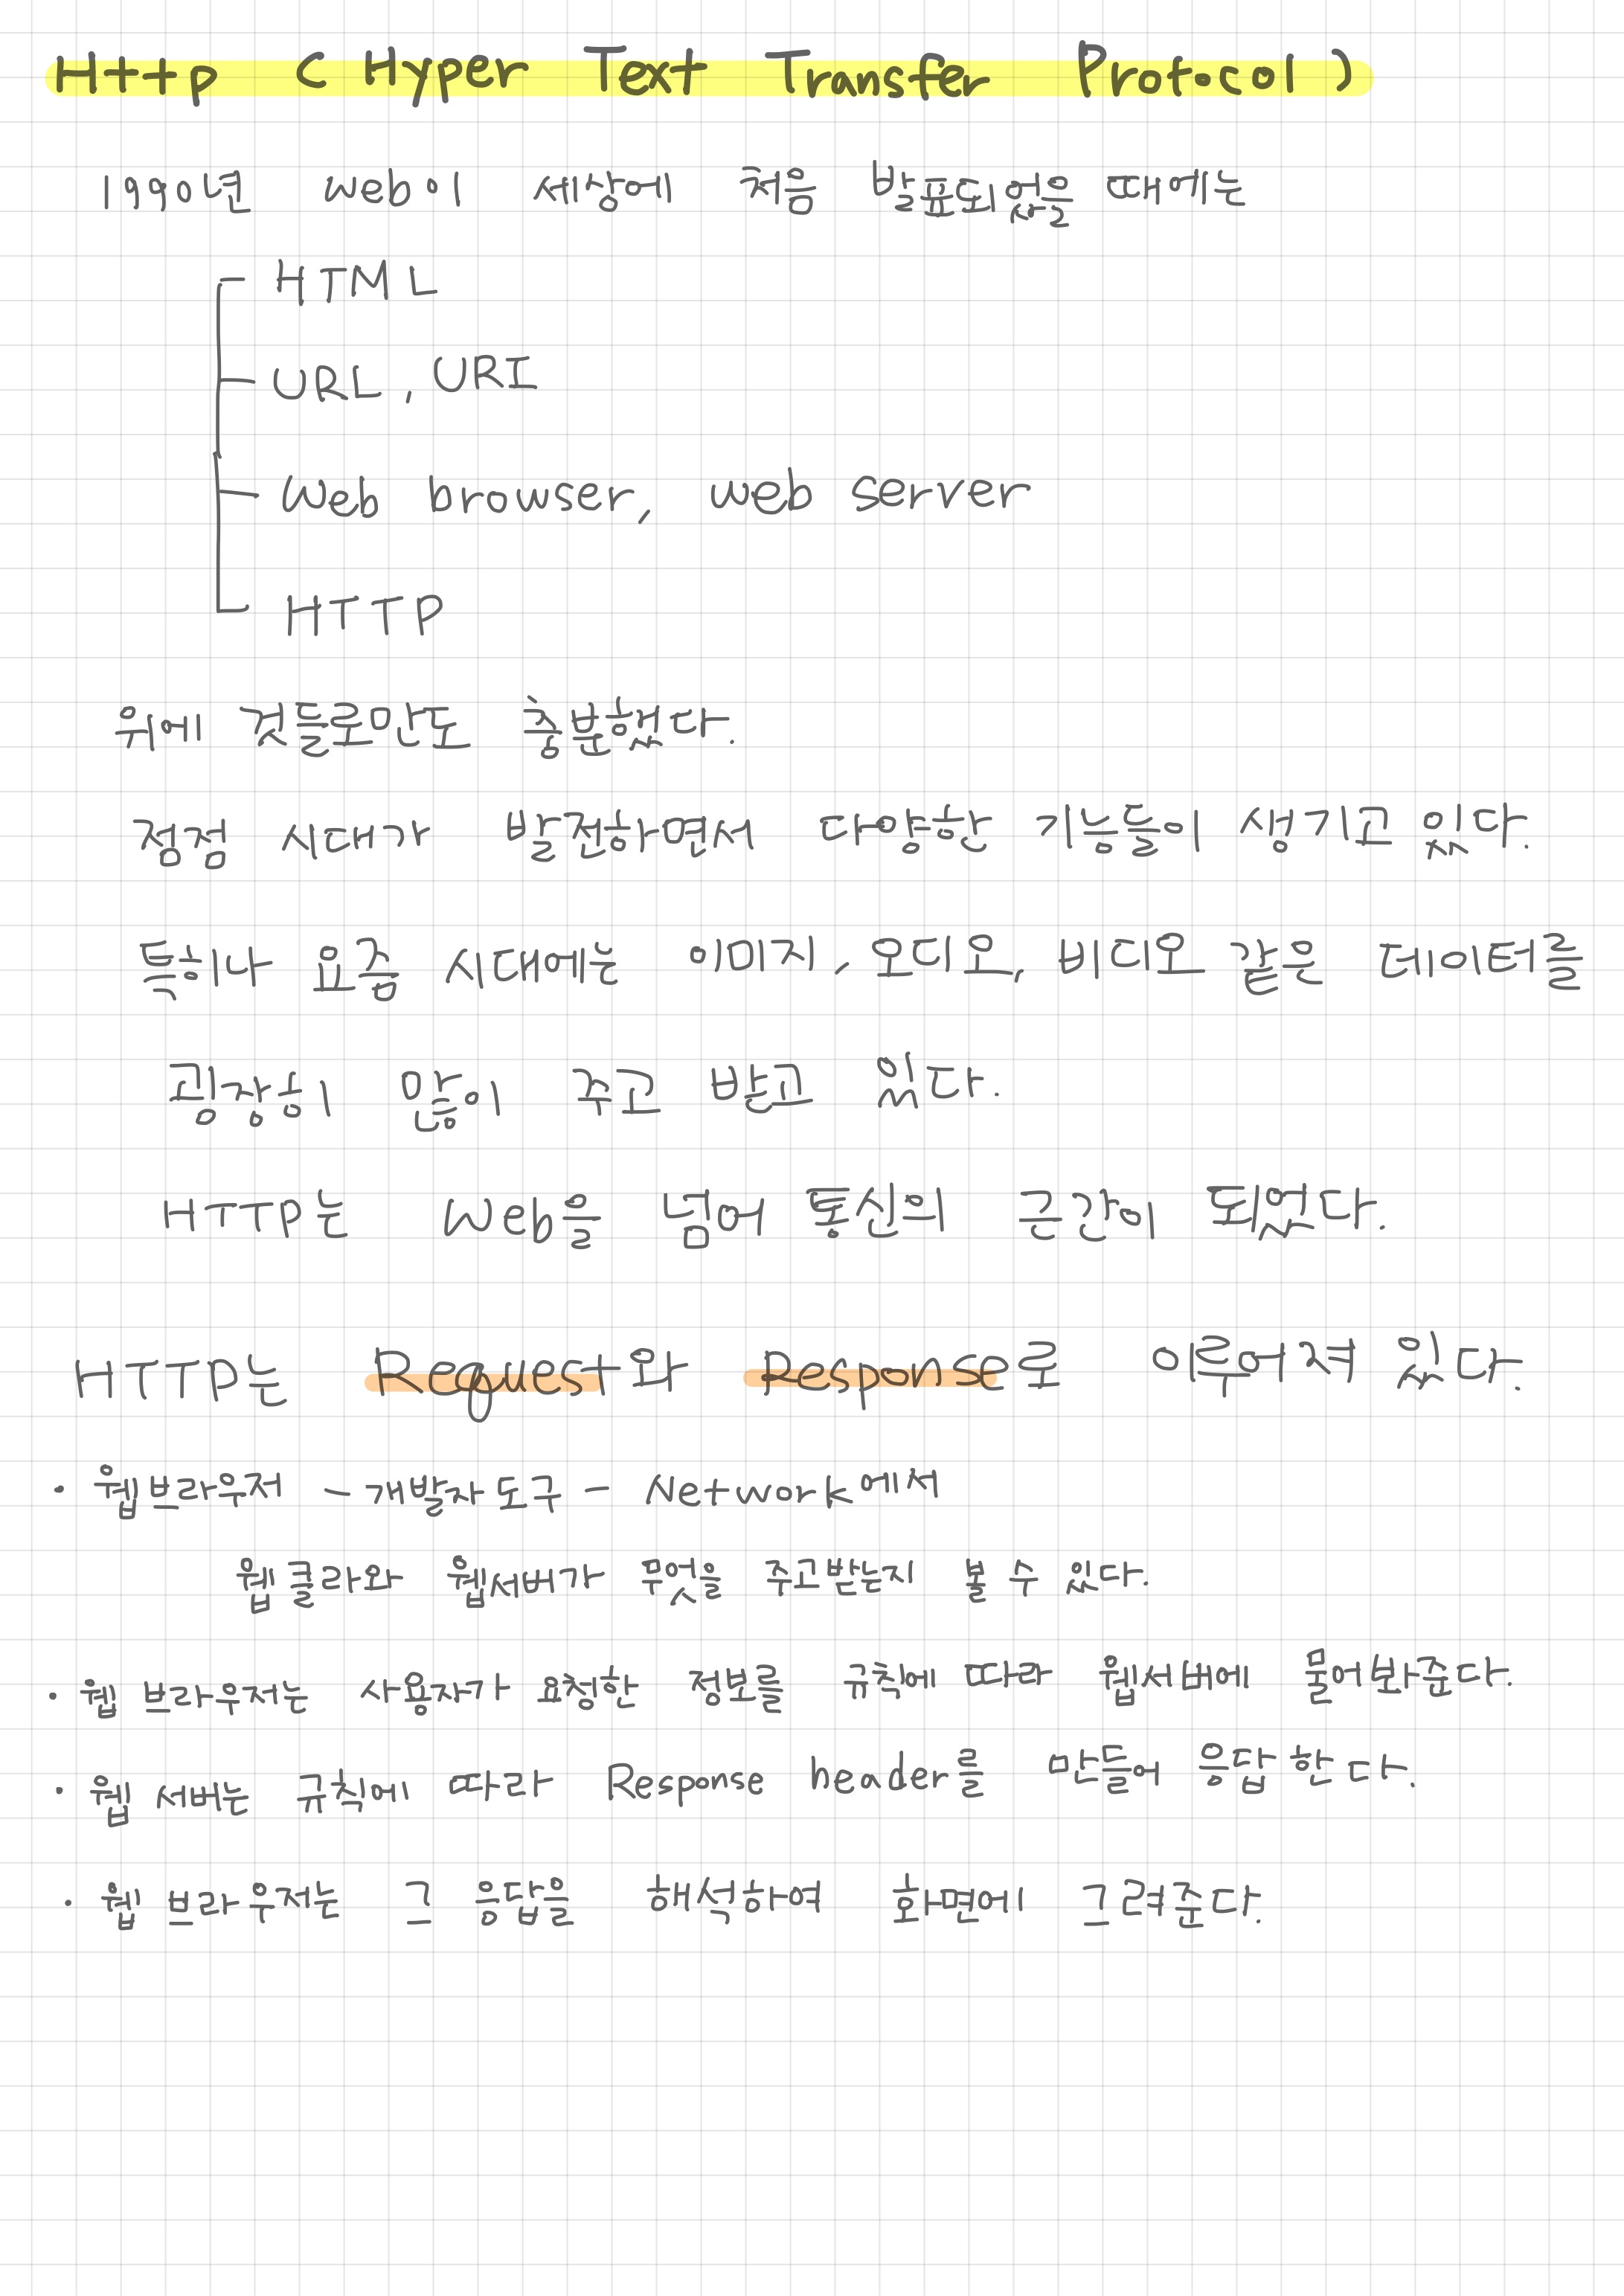 Http ( Hyper Text Transfer Protocol )
1990년 web이 세상에 처음 발표되었을 때에는
HTML
URL, URI
Web browser, web server
HTTP
위에 것들로만도 충분했다.
점점 시대가 발전하면서 다양한 기능들이 생기고 있다.
특히나 요즘 시대에는 이미지, 오디오, 비디오 같은 데이터를
굉장히 많이 주고 받고 있다.
HTTP는 Web을 넘어 통신의 근간이 되었다.
HTTP는 Request와 Response로 이루어져 있다.
· 웹브라우저 - 개발자도구 - Network에서
웹클라와 웹서버가 무엇을 주고받는지 볼 수 있다.
· 웹 브라우저는 사용자가 요청한 정보를 규칙에 따라 웹서버에 물어봐준다.
· 웹 서버는 규칙에 따라 Response header를 만들어 응답한다.
· 웹 브라우저는 그 응답을 해석하여 화면에 그려준다.